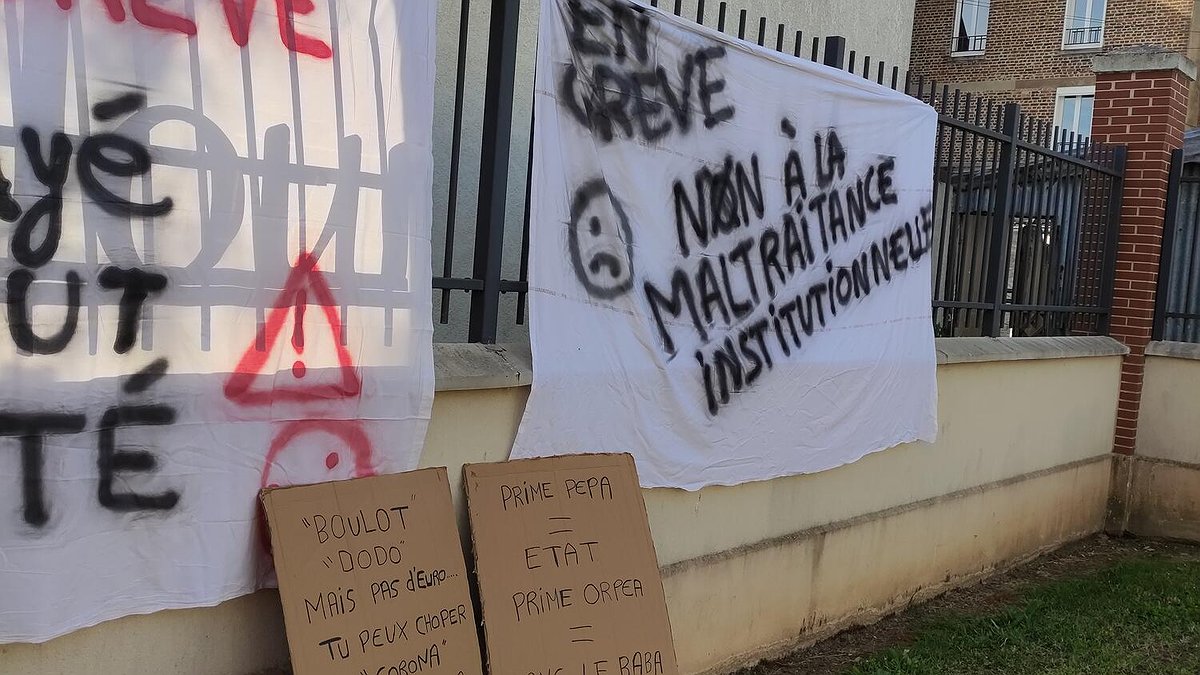 EN
GREVE
NON À LA
MALTRAITANCE
INSTITUTIONNELLE
UT
TÉ
"BOULOT"
"DODO"
MAIS PAS d'EURO....
TU PEUX CHOPER
"CORONA"
PRIME PEPA
=
ETAT
PRIME ORPEA
=
LE BABA